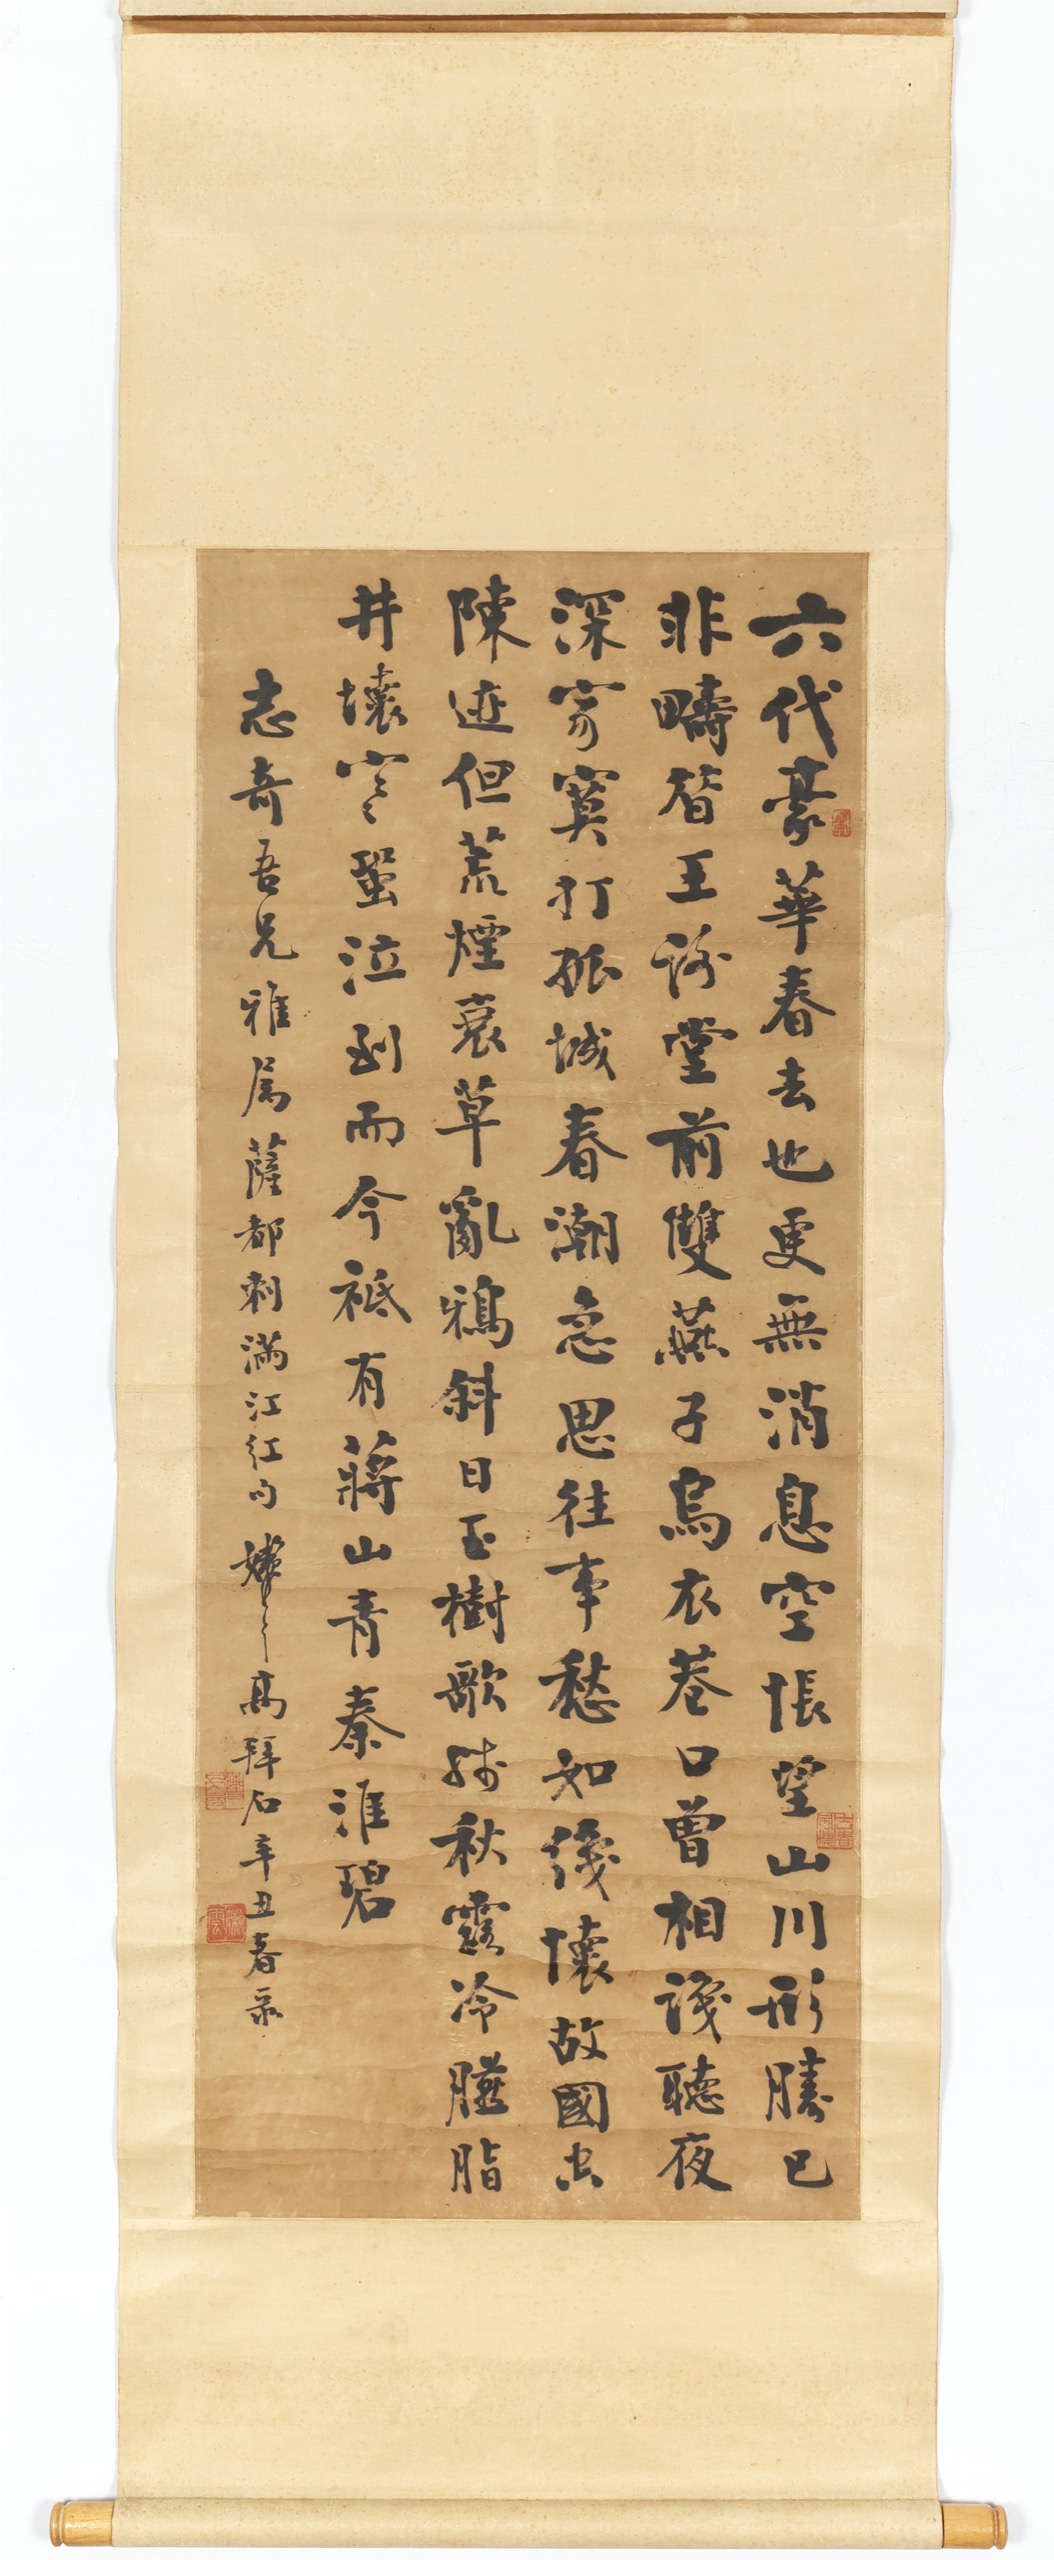 六代豪華春去也更無消息空悵望山川形勝已
非疇昔王謝堂前雙燕子烏衣巷口曾相識聽夜
深寂寞打孤城春潮急思往事愁如織懷故國空
陳迹但荒煙衰草亂鴉斜日玉樹歌殘秋露冷臙脂
井壞寒螿泣到而今祗有蔣山青秦淮碧
志奇吾兄雅属薩都剌滿江紅句 高拜石辛丑春